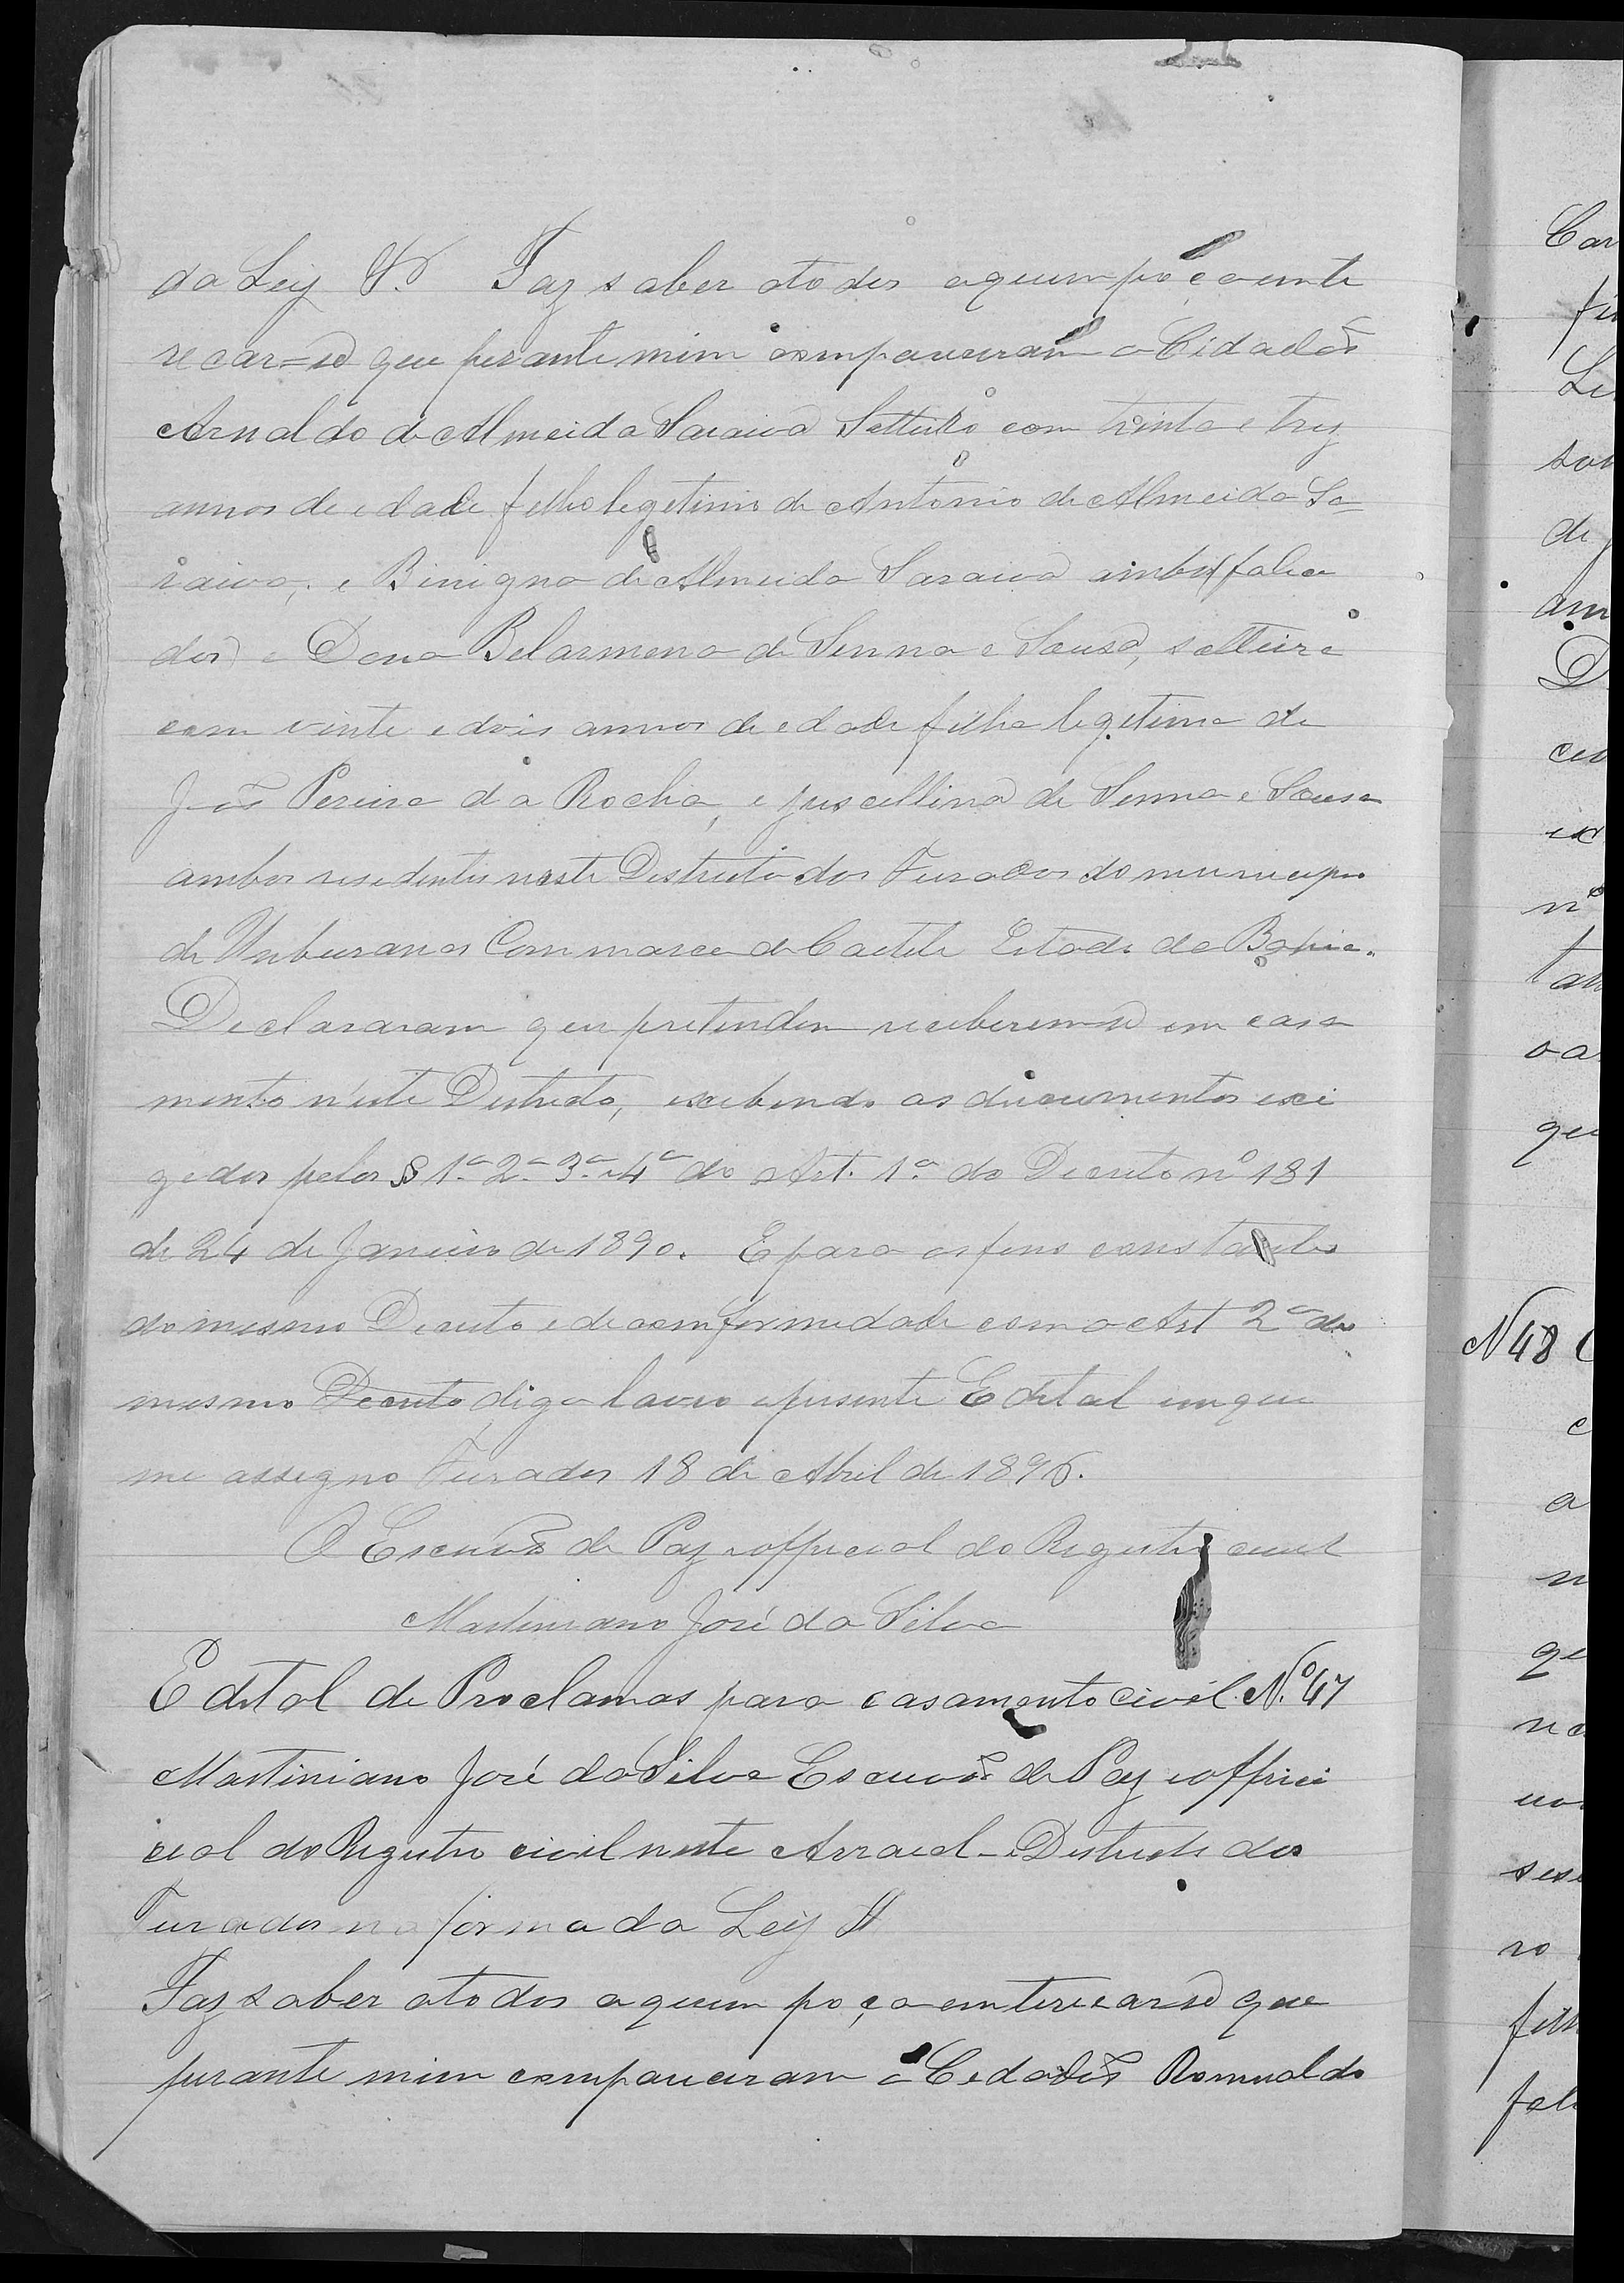 da Ley &. Faz saber atodos aquem poça emte
recar=se que perante mim compareceram o Cidadão
Arnaldo de Almeida Saraiva Solteiro com trinta e trez
annos de edade filho legetimo de Antonio de Almeida Sa=
raiva, e Binigna de Almeida Saraiva ambos falia
dos e Dona Belarmena de Senna e Sousa, solteira
com vinte e dois annos de edade filha legetima de
João Pereira da Rocha, e Juscellina de Senna e Sousa
ambos resedentes neste Destricto dos Furados do municipio
de Umburanas Commarca de Caetete Estado da Bahia.
Declararam que pretendem receberem-se em casa
mento n'este Destricto, exebindo os documentos exi
gedos pelos § 1º 2º 3º e 4º do Art. 1º do Decreto nº 181
de 24 de Janeiro de 1890. E para os fins constantes
do mesmo Decreto e de comformedade com o Art 2º do
mesmo Decreto digo lavro o presente Edetal em que
me assegno Furados 18 de Abril de 1896.
O Escrivão de Paz e official do Registro civel
Martiniano José da Silva
Edetal de Proclamas para casamento civel. Nº 47
Martiniano José da Silva Escrivão de Paz e offici
cial do Registro civil neste Arraial e Destricto dos
Furados na forma da Ley &
Faz saber atodos aquem poça emterecarse que
perante mim compareceram o Cedadão Romualdo
Car
Le
sou
de
am
D
tam
oa
que
N 48
e
a
n